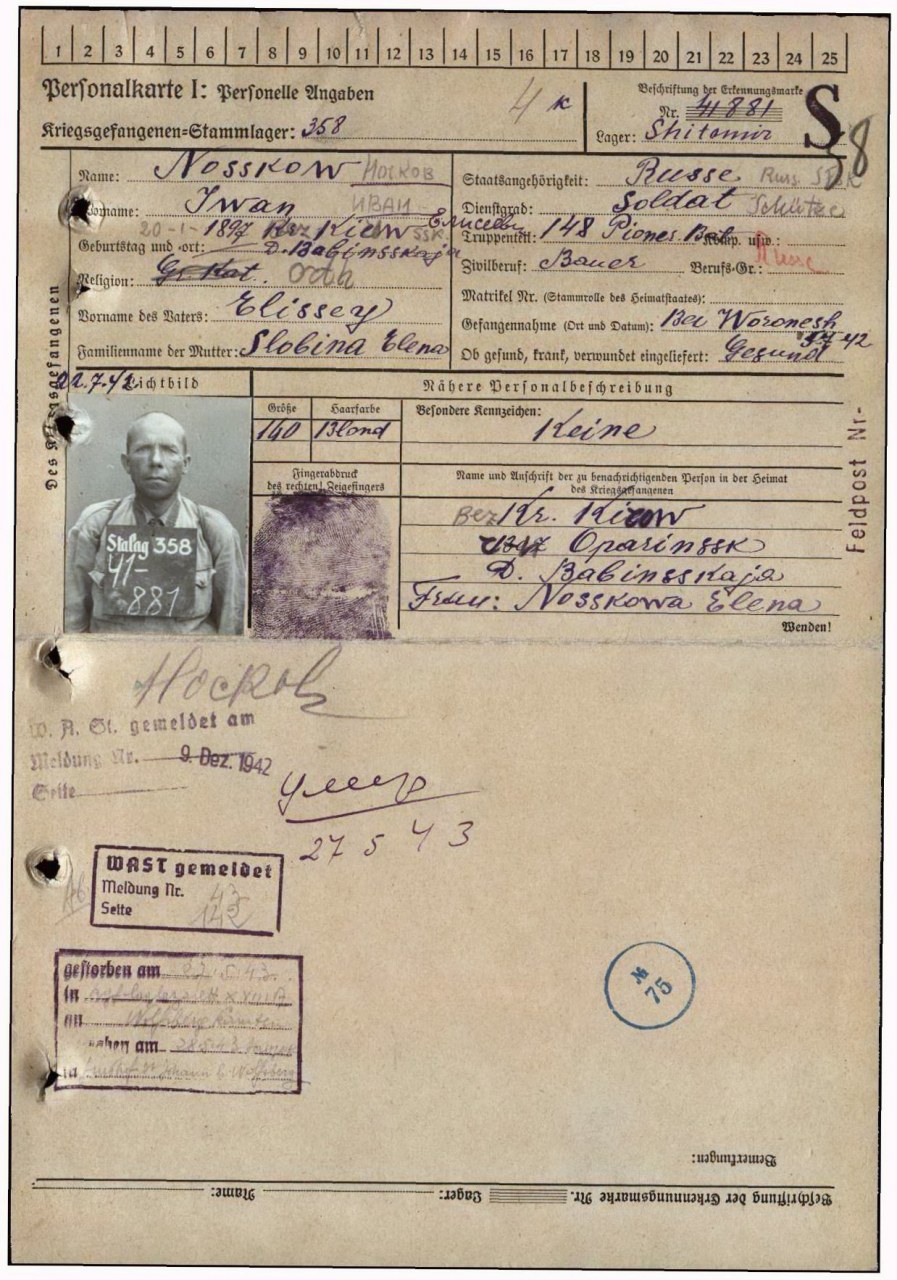 1 2 3 4 5 6 7 8 9 10 11 12 13 14 15 16 17 18 19 20 21 22 23 24 25
Personalkarte I: Personelle Angaben
4 K
Kriegsgefangenen=Stammlager: 358
Beschriftung der Erkennungsmarke
Nr. 41881
Lager: Shitomir
S
8
Des Kriegsgefangenen
Name: Nosskow Носков
Vorname: Iwan ИВАН
20-1-1897 Kr. Kirow
Geburtstag und =ort: D. Babinsskaja
Religion: Gr. Kat. Orth
Vorname des Vaters: Elissey
Familienname der Mutter: Slobina Elena
Staatsangehörigkeit: Russe Russ.
Dienstgrad: Soldat Schütze
Truppenteil: 148 Pioner. Bat. Komp. usw.:
Russe
Zivilberuf: Bauer Berufs-Gr.:
Matrikel Nr. (Stammrolle des Heimatstaates):
Gefangennahme (Ort und Datum): Bei Woronesh
42
Ob gesund, krank, verwundet eingeliefert: Gesund
22.7.42 Lichtbild
Nähere Personalbeschreibung
Größe Haarfarbe
160 Blond
Besondere Kennzeichen:
Keine
Fingerabdruck
des rechten! Zeigefingers
Name und Anschrift der zu benachrichtigenden Person in der Heimat
des Kriegsgefangenen
Bez Kr. Kirow
Oparinssk
D. Babinsskaja
Frau: Nosskowa Elena
Wenden!
Feldpost Nr-
Stalag 358
41-
881
Носков
W. A. St. gemeldet am
Meldung Nr. 9. Dez. 1942
Seite
умер
27 5 43
WASt gemeldet
Meldung Nr. 43
Seite 142
gestorben am 27.5.43.
in
an Wolfsberg Kärnten
am 28.5.43
in Friedhof St. Johann b. Wolfsberg
№ 75
Bemerkungen:
Beschriftung der Erkennungsmarke Nr. Lager: Name: